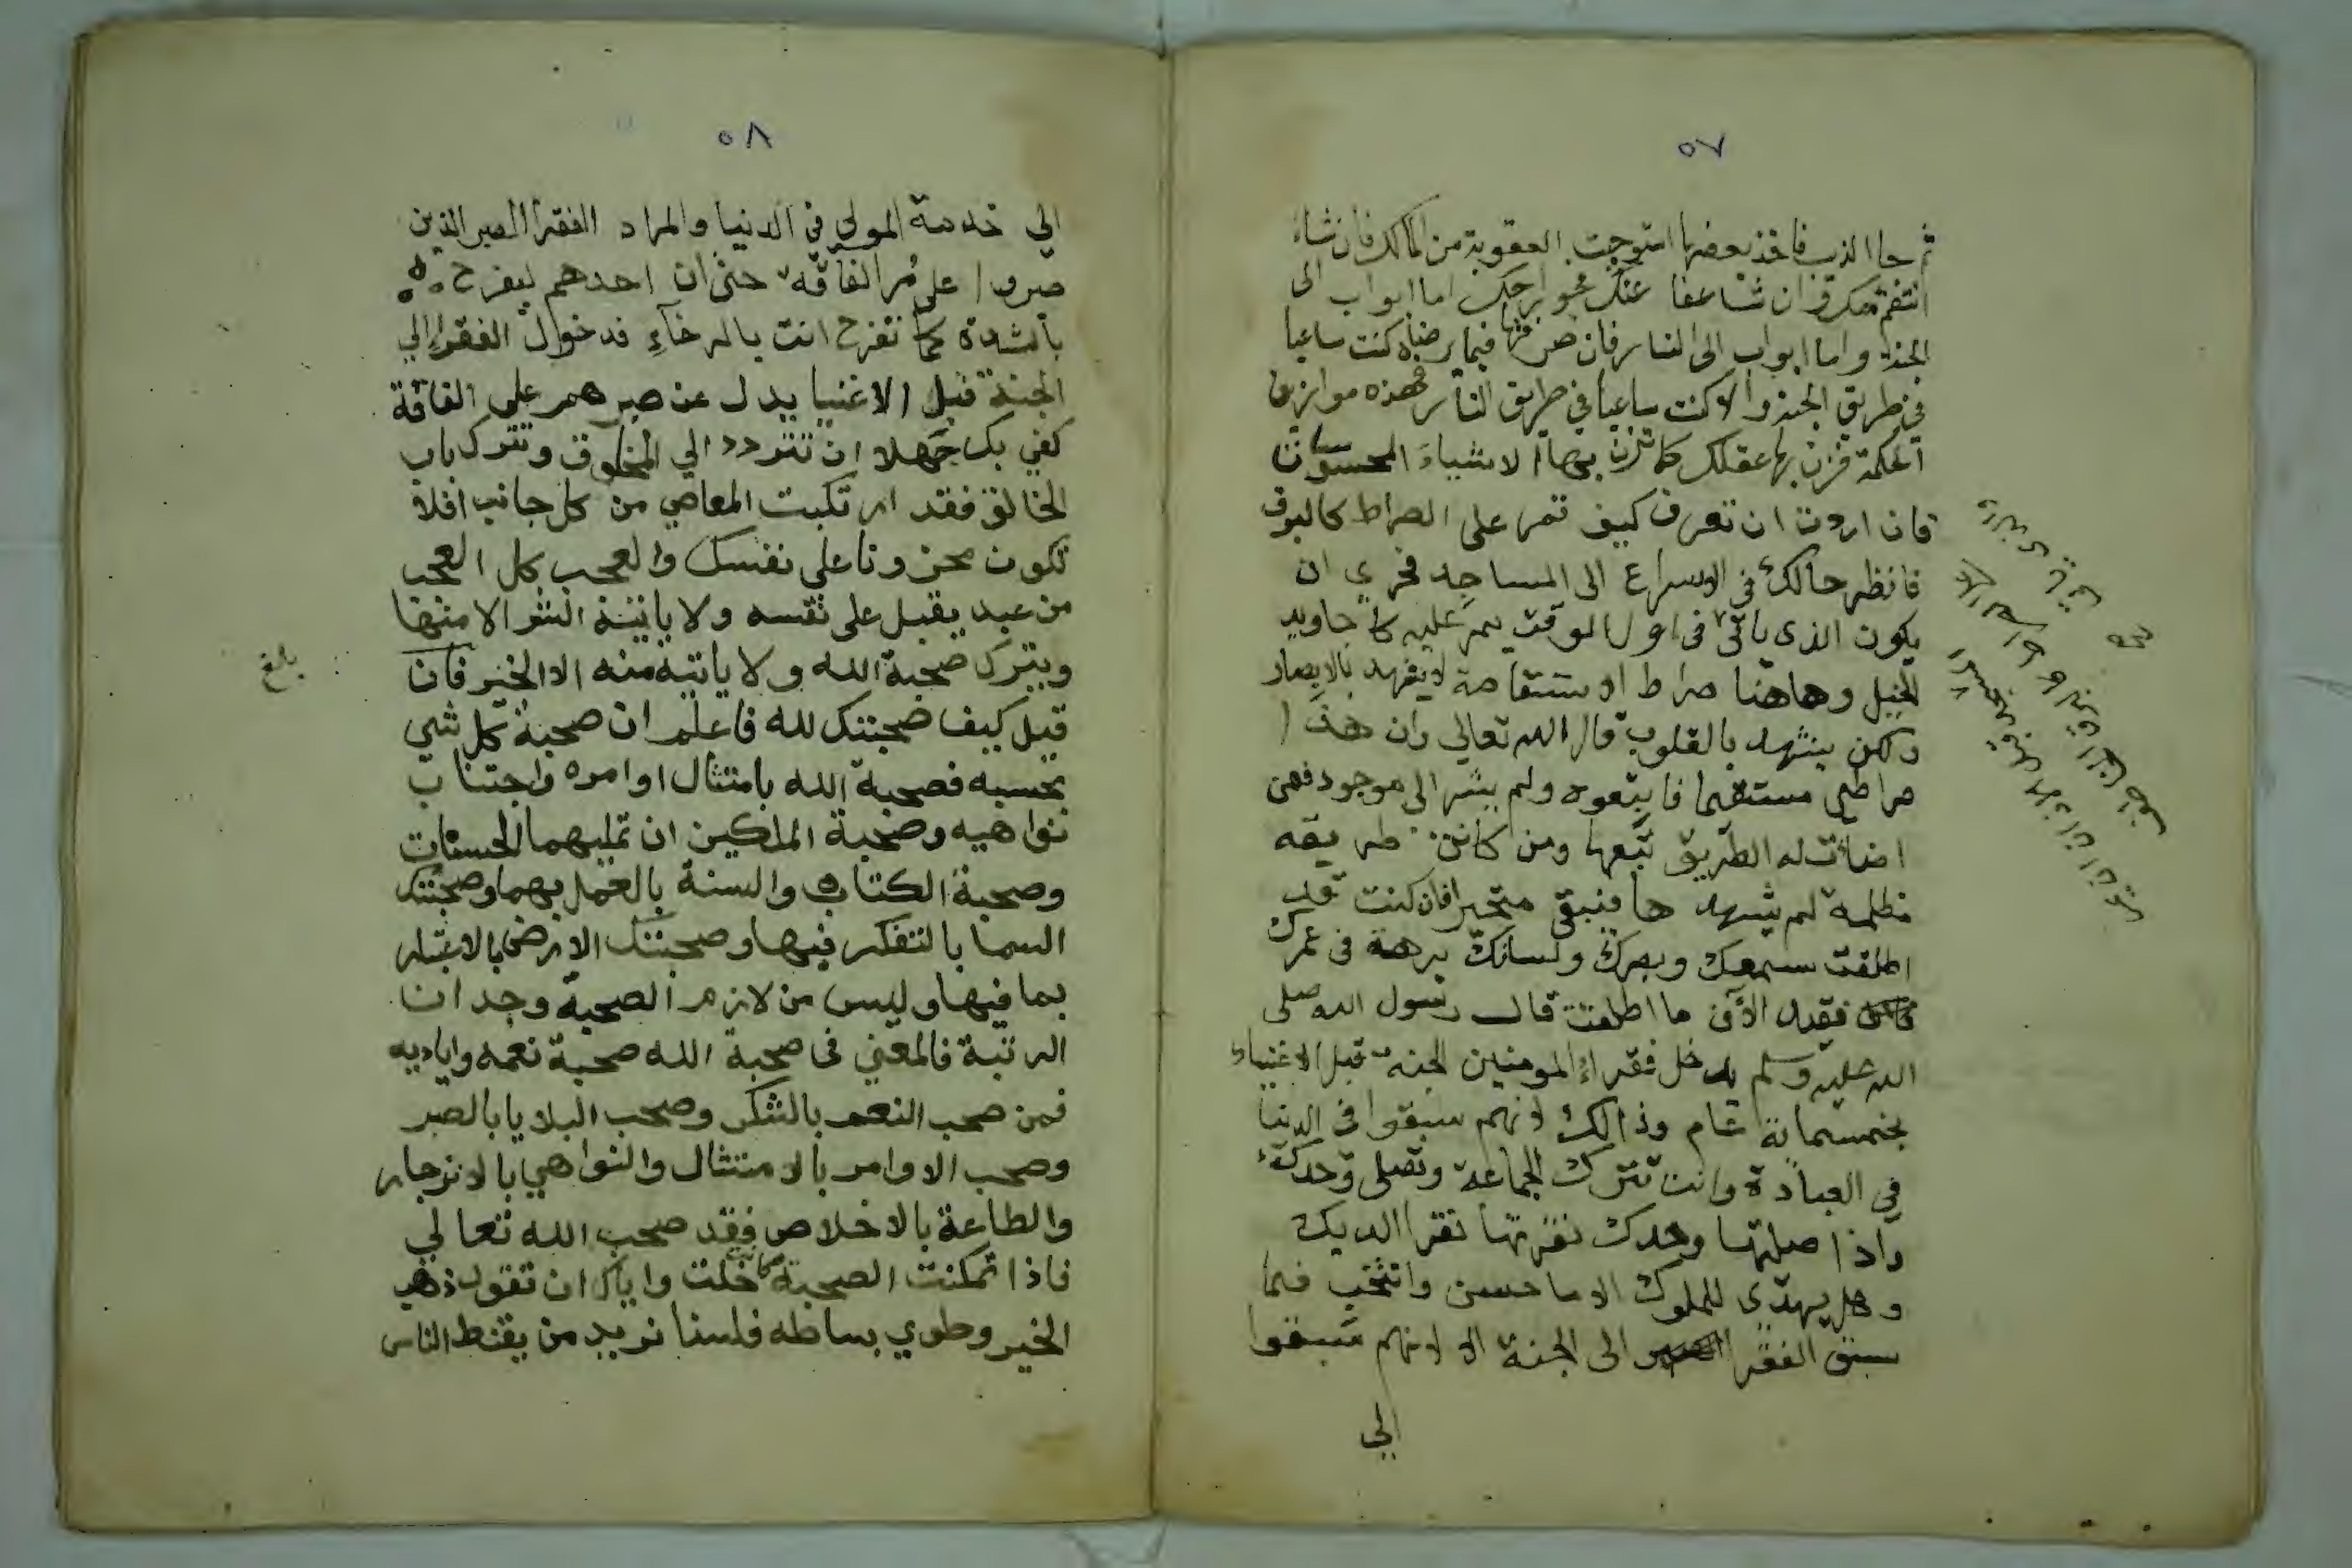 ٥٧
ثم جا الذيب فاخذ بعضها استوجبت العقوبة من المالك فان شاء
انتقم منك وان شا عفا عنك فجوارحك اما ابواب الى
الجنة واما ابواب الى النار فان صرفتها فيما يرضاه كنت ساعيا
في طريق الجنة والا كنت ساعيا في طريق النار فهذه موازين
الحكمة فزن بها عقلك كما تزن بها الاشياء المحسوسات
فان اردت ان تعرف كيف تمر على الصراط كالبرق
فانظر حالك في الاسراع الى المساجد فحري ان
يكون الذي ياتي في اول الوقت يمر عليه كاجاويد
الخيل وهاهنا صراط استقامة لا يشهد بالابصار
ولكن يشهد بالقلوب قال الله تعالي وان هذا
صراطي مستقيما فاتبعوه ولم يشر الى موجود فمن
اضائت له الطريق تبعها ومن كانت طريقه
مظلمة لم يشهدها فيبقى متحيرا فان كنت قد
اطلقت سمعك وبصرك ولسانك برهة في عمرك
فقيد الآن ما اطلقت قال رسول الله صلى
الله عليه وسلم يدخل فقراء المومنين الجنة قبل الاغنياء
بخمسماية عام وذالك لانهم سبقوا في الدنيا
في العبادة وانت تترك الجماعة وتصلى وحدك
واذا صليتها وحدك نقرتها نقر الديك
وهل يهدى للملوك الا ما حسن وانتخب فما
سبق الفقرا الى الجنة الا لانهم سبقوا
الي
٥٨
الي خدمة المولي في الدنيا والمراد الفقرا الصبر الذين
صبروا على مُر الفاقة حتى ان احدهم ليفرح
بالشدة كما تفرح انت بالرخاءِ فدخول الفقراءِ الي
الجنة قبل الاغنيا يدل عن صبرهم على الفاقة
كفي بك جهلا ان تتردد الي المخلوق وتترك باب
الخالق فقد ارتكبت المعاصي من كل جانب افلا
تكون محزونا على نفسك والعجب كل العجب
من عبد يقبل على نفسه ولا ياتيه الشر الا منها
ويترك صحبة الله ولا ياتيه منه الا الخير فان
قيل كيف صحبتك لله فاعلم ان صحبة كل شي
بحسبه فصحبة الله بامتثال اوامره واجتناب
نواهيه وصحبة الملكين ان تمليهما الحسنات
وصحبة الكتاب والسنة بالعمل بهما وصحبتك
السما بالتفكر فيها وصحبتك الارض بالاعتبار
بما فيها وليس من لازم الصحبة وجدان
الرتبة فالمعني في صحبة الله صحبة نعمه واياديه
فمن صحب النعم بالشكر وصحب البلايا بالصبر
وصحب الاوامر بالامتثال والنواهي بالانزجار
والطاعة بالاخلاص فقد صحب الله تعالي
فاذا تمكنت الصحبة كانت خلت واياك ان تقول ذهب
الخير وطوي بساطه فلسنا نريد من يقنط الناس
بلغ